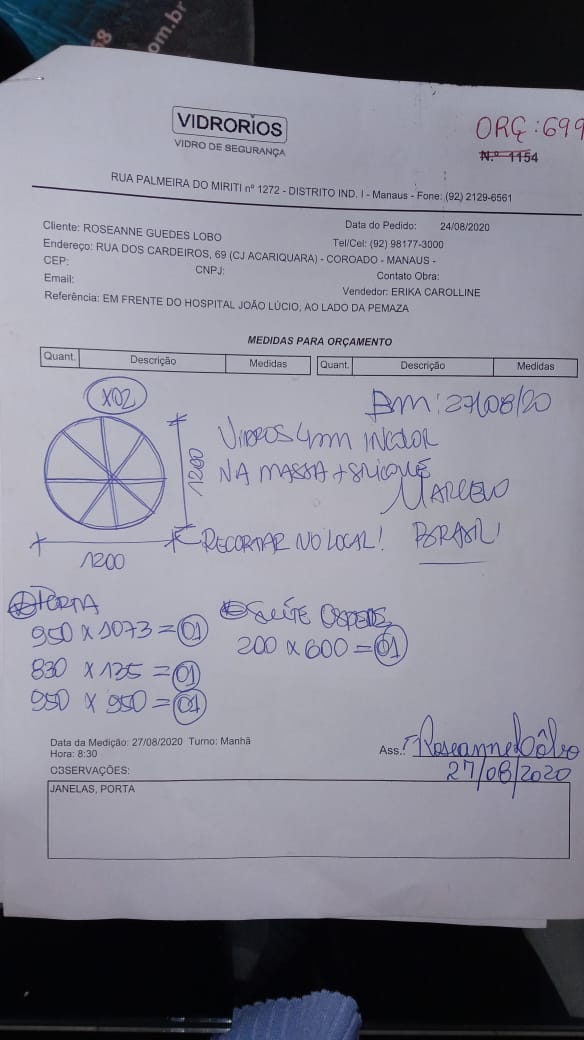 68
om.br
VIDRORIOS
VIDRO DE SEGURANÇA
ORÇ: 699
N.º 1154
RUA PALMEIRA DO MIRITI nº 1272 - DISTRITO IND. I - Manaus - Fone: (92) 2129-6561
Cliente: ROSEANNE GUEDES LOBO
Data do Pedido: 24/08/2020
Tel/Cel: (92) 98177-3000
Endereço: RUA DOS CARDEIROS, 69 (CJ ACARIQUARA) - COROADO - MANAUS -
CEP: CNPJ: Contato Obra:
Email: Vendedor: ERIKA CAROLLINE
Referência: EM FRENTE DO HOSPITAL JOÃO LÚCIO, AO LADO DA PEMAZA
MEDIDAS PARA ORÇAMENTO
Quant. Descrição Medidas Quant. Descrição Medidas
X02
BM: 27/08/20
VIDROS 4mm INCOLOR
NA MASSA + SILICONE
MARCELO
1200
RECORTAR NO LOCAL! BRASIL!
1200
PORTA
950 X 1073 = 01
830 X 135 = 01
950 X 950 = 01
SUÍTE
200 X 600 = 01
Data da Medição: 27/08/2020 Turno: Manhã
Hora: 8:30
Ass.: Roseanne Lôbo
27/08/2020
OBSERVAÇÕES:
JANELAS, PORTA